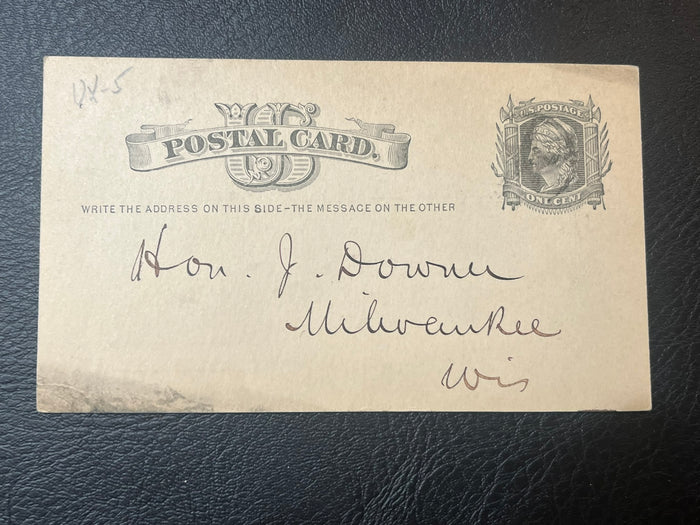 UX-5
US
POSTAL CARD.
U.S. POSTAGE
ONE CENT
WRITE THE ADDRESS ON THIS SIDE-THE MESSAGE ON THE OTHER
Hon. J. Downer
Milwaukee
Wis